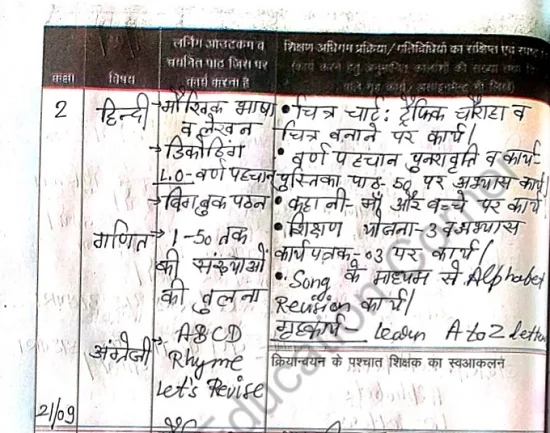 कक्षा
विषय
लर्निंग आउटकम व
चयनित पाठ जिस पर
कार्य करना है
शिक्षण अधिगम प्रक्रिया / गतिविधियों का संक्षिप्त एवं स्पष्ट
(कार्य करने हेतु अनुमानित कालांशों की संख्या तथा
2
हिन्दी
→मौखिक भाषा
व लेखन
→ डिकोडिंग
L.O-वर्ण पहचान
→ बिग बुक पठन
• चित्र चार्ट: ट्रैफिक चौराहा व
चित्र बनाने पर कार्य।
• वर्ण पहचान पुनरावृति व कार्य-
पुस्तिका पाठ-50 पर अभ्यास कार्य।
• कहानी-माँ और बच्चे पर कार्य
गणित
→ 1-50 तक
की संख्याओं
की तुलना
• शिक्षण योजना-3 व अभ्यास
कार्यपत्रक-03 पर कार्य।
अंग्रेजी
→ ABCD
Rhyme
Let's Revise
• Song के माध्यम से Alphabet
Revision कार्य।
गृहकार्य Learn A to Z
क्रियान्वयन के पश्चात शिक्षक का स्वआकलन
21/09
Education Corner